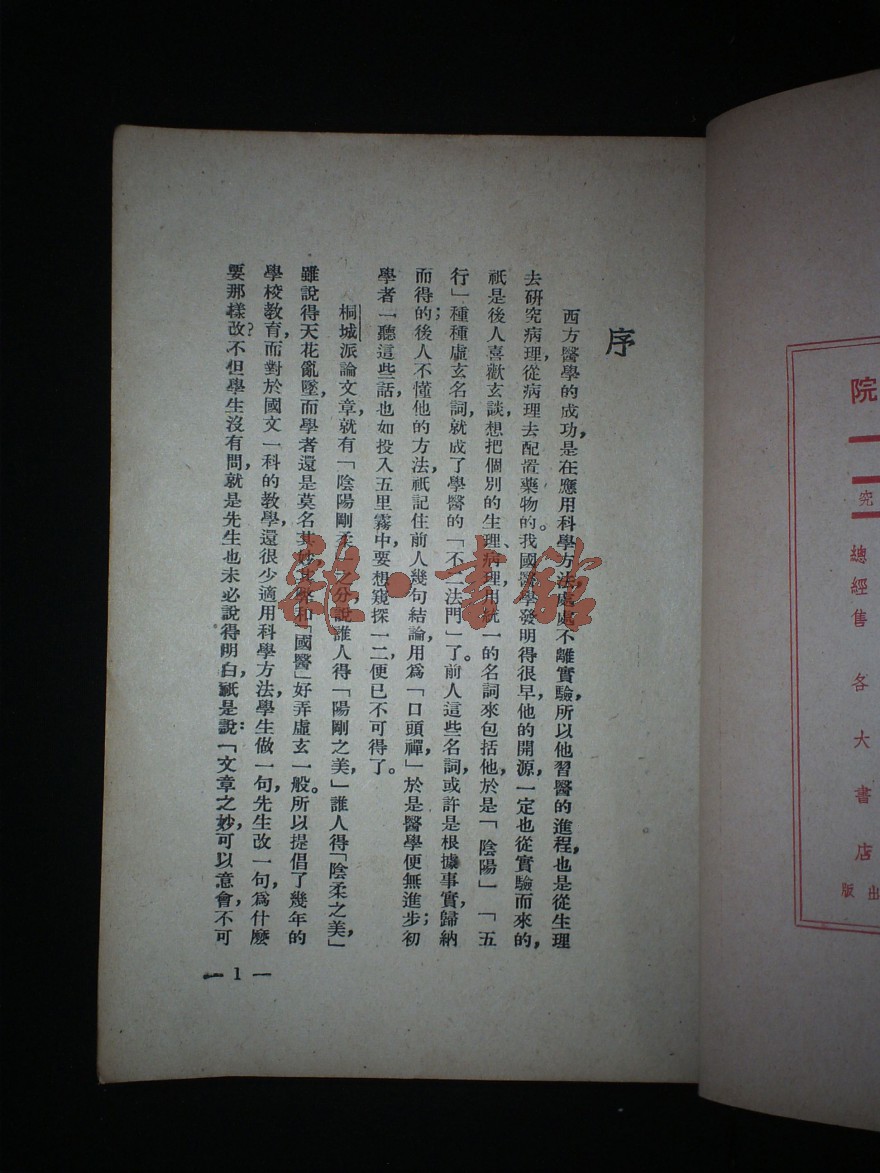 院
究
總經售 各大書店
出版
序
西方醫學的成功,是在應用科學方法,處處不離實驗,所以他習醫的進程,也是從生理
去研究病理,從病理去配置藥物的。我國醫學發明得很早,他的開源,一定也從實驗而來的,
祇是後人喜歡玄談,想把個別的生理、病理,用統一的名詞來包括他,於是「陰陽」「五
行」種種虛玄名詞,就成了學醫的「不二法門」了。前人這些名詞,或許是根據事實歸納
而得的;後人不懂他的方法,祇記住前人幾句結論,用爲「口頭禪,」於是醫學便無進步;初
學者一聽這些話,也如投入五里霧中,要想窺探一二,便已不可得了。
桐城派論文章,就有「陰陽剛柔」之分,說誰人得「陽剛之美,」誰人得「陰柔之美,」
雖說得天花亂墜,而學者還是莫名其妙,其弊和「國醫」好弄虛玄一般。所以提倡了幾年的
學校教育,而對於國文一科的教學,還很少適用科學方法,學生做一句,先生改一句,爲什麼
要那樣改?不但學生沒有問,就是先生也未必說得明白,祇是說:「文章之妙,可以意會,不可
— 1 —
雜·書館